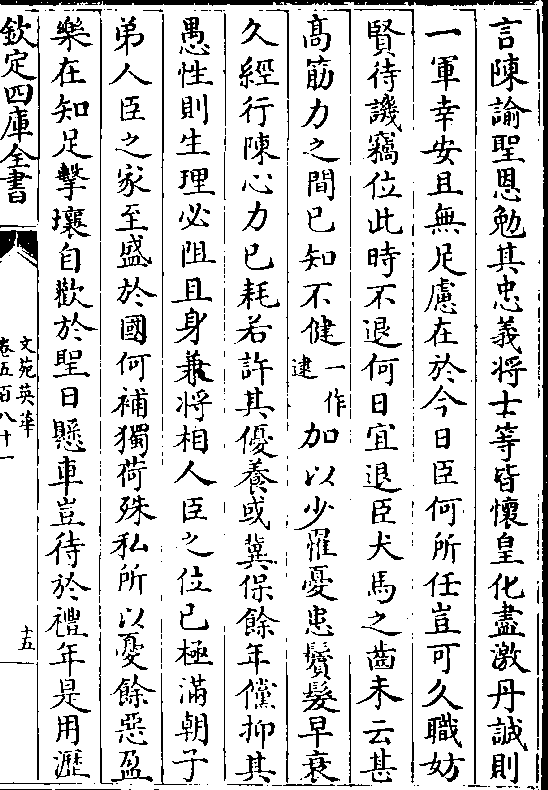 言陳諭聖恩勉其忠義将士等皆懷皇化盡激丹誠則
一軍幸安且無足慮在於今日臣何所任豈可久職妨
賢待譏竊位此時不退何日宜退臣犬馬之齒未云甚
髙筋力之間已知不健一作逮加以少罹憂患鬢髮早衰
久經行陳心力已耗若許其優養或冀保餘年儻抑其
愚性則生理必阻且身兼将相人臣之位已極滿朝子
弟人臣之家至盛於國何補獨荷殊私所以憂餘惡盈
樂在知足擊壤自歡於聖日懸車豈待於禮年是用瀝
欽定四庫全書
文苑英華
卷五百八十一
十五